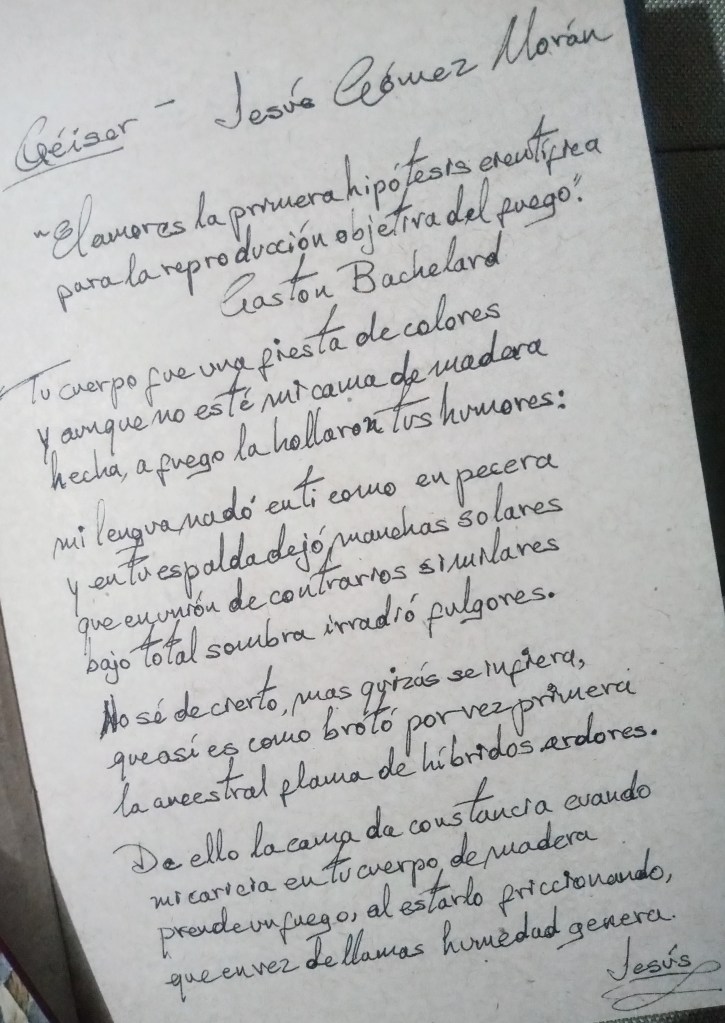 Géiser - Jesús Gómez Morán
"El amor es la primera hipótesis científica
para la reproducción objetiva del fuego".
Gaston Bachelard
Tu cuerpo fue una fiesta de colores
y aunque no esté mi cama de madera
hecha, a fuego la hollaron tus humores:
mi lengua nadó en ti como en pecera
y en tu espalda dejó manchas solares
que en unión de contrarios similares
bajo total sombra irradió fulgores.
No sé de cierto, mas quizás se infiera,
que así es como brotó por vez primera
la ancestral flama de híbridos ardores.
De ello la cama da constancia cuando
mi caricia en tu cuerpo de madera
prende un fuego, al estarlo friccionando,
que en vez de llamas humedad genera.
Jesús